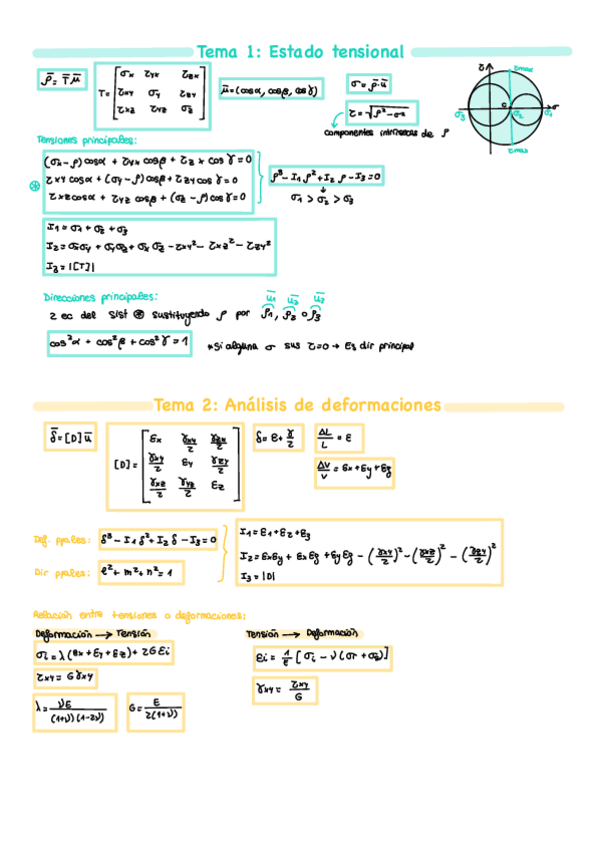 Tema 1: Estado tensional
ρ̄ = T̄ μ̄
T = [σx τyx τzx
τxy σy τzy
τxz τyz σz]
μ̄ = (cosα, cosβ, cosγ)
σ = ρ̄·ū
τ = √(ρ² − σ²)
componentes intrínsecas de ρ
τ τmax
σ3 c σ2 σ1 σ
τmax
Tensiones principales:
(σx − ρ) cosα + τyx cosβ + τzx cosγ = 0
⊛ τxy cosα + (σy − ρ) cosβ + τzy cosγ = 0
τxz cosα + τyz cosβ + (σz − ρ) cosγ = 0
ρ³ − I1 ρ² + I2 ρ − I3 = 0
σ1 > σ2 > σ3
I1 = σ1 + σ2 + σ3
I2 = σxσy + σyσz + σxσz − τxy² − τxz² − τzy²
I3 = |[T]|
Direcciones principales:
ū1 ū2 ū3
2 ec del sist ⊛ sustituyendo ρ por ρ1, ρ2 o ρ3
cos²α + cos²β + cos²γ = 1
*Si alguna σ sus τ=0 → Es dir principal
Tema 2: Análisis de deformaciones
δ̄ = [D] ū
[D] = [εx γxy/2 γzx/2
γxy/2 εy γzy/2
γxz/2 γyz/2 εz]
δ = ε + γ/2
ΔL/L = ε
ΔV/V = εx + εy + εz
Def. ppales: δ³ − I1 δ² + I2 δ − I3 = 0
Dir ppales: l² + m² + n² = 1
I1 = ε1 + ε2 + ε3
I2 = εxεy + εxεz + εyεz − (γxy/2)² − (γxz/2)² − (γzy/2)²
I3 = |D|
Relación entre tensiones o deformaciones:
Deformación → Tensión
σi = λ(εx + εy + εz) + 2Gεi
τxy = G γxy
λ = νE/(1+ν)(1−2ν)
G = E/2(1+ν)
Tensión → Deformación
εi = 1/E [σi − ν(σr + σz)]
γxy = τxy/G